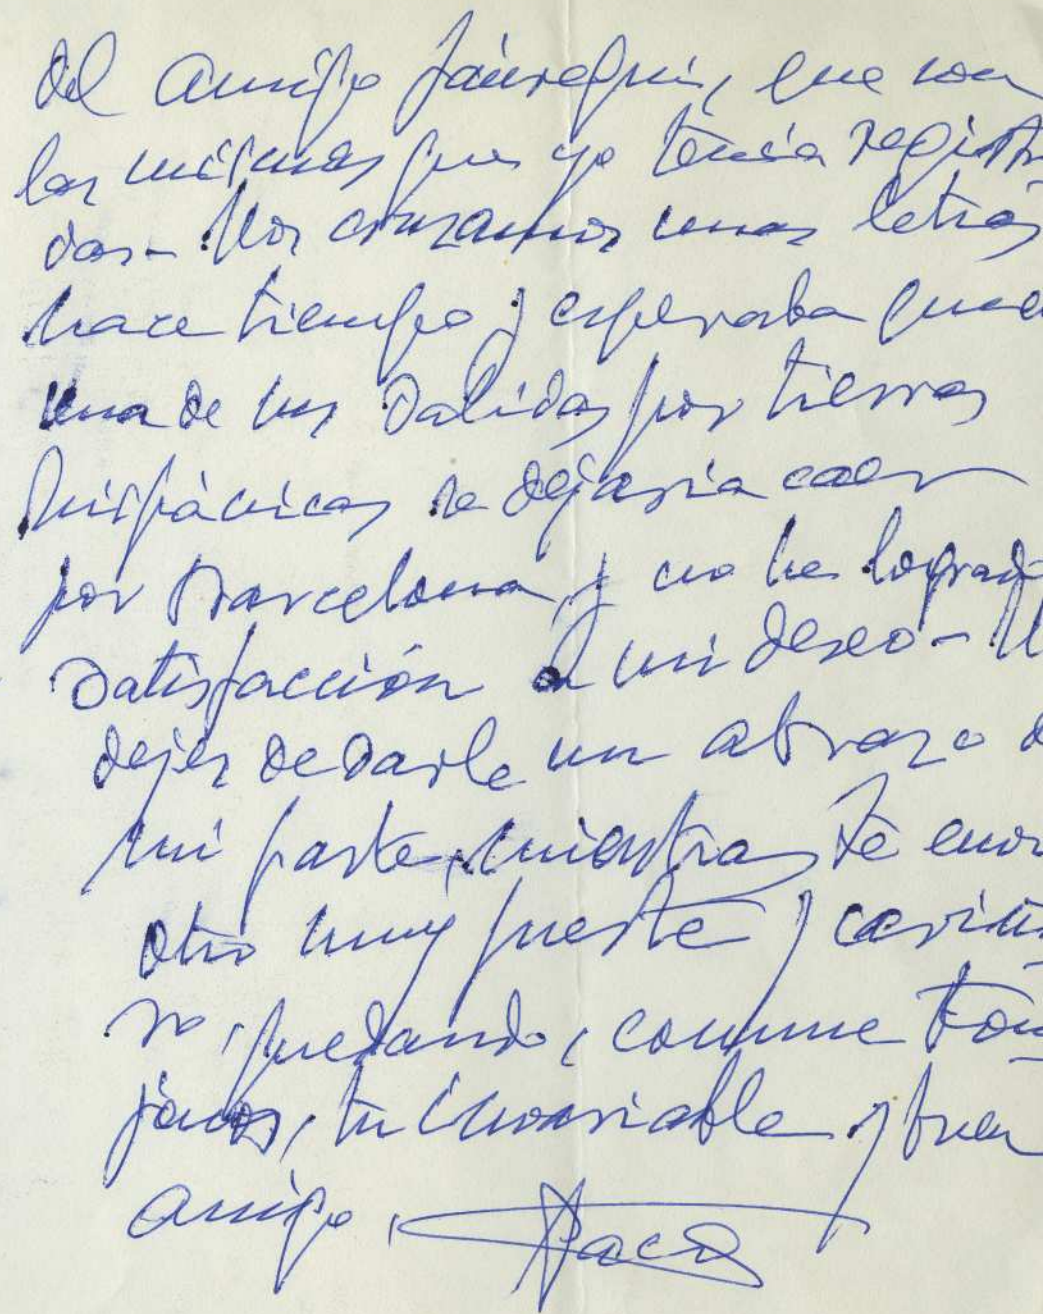 del amigo Jáuregui, que son
las mismas que yo tenía registra
das.- Nos cruzamos unas letras
hace tiempo y esperaba que
una de sus salidas por tierras
hispánicas se dejaría caer
por Barcelona, y no he lograd
satisfacción a mi deseo -
dejes de darle un abrazo d
mi parte, mientras te envi
otro muy fuerte y cariñ
so, quedando, comme tou
jours, tu invariable y buen
amigo, Paco